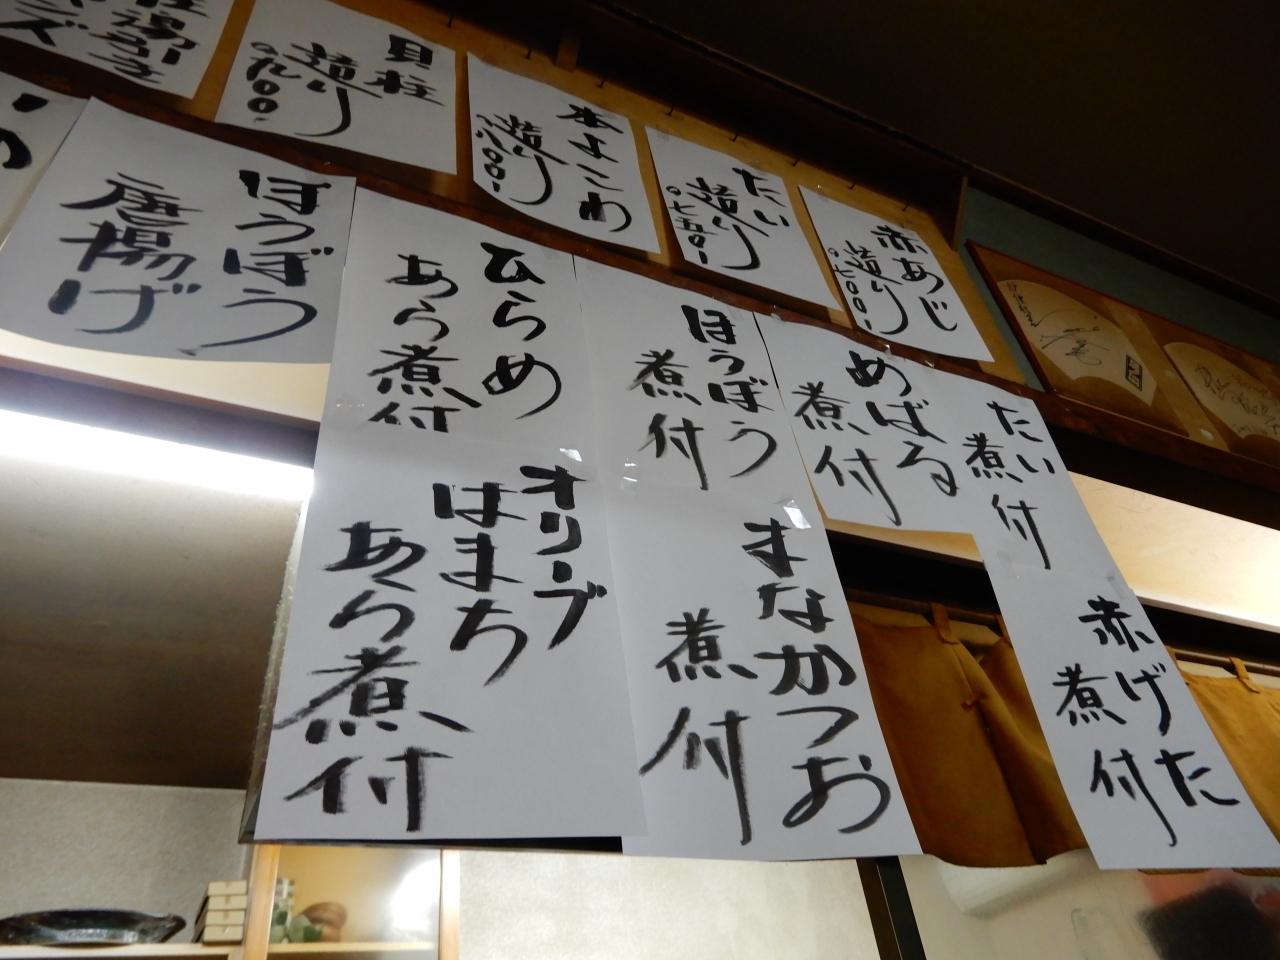 赤あじ
造り
〇七〇〇、
たい
造り
〇七五〇、
本よこわ
造り
貝柱
造り
〇九〇〇、
たい
煮付
赤げた
煮付
めばる
煮付
ほうぼう
煮付
まなかつお
煮付
ひらめ
あら煮付
オリーブ
はまち
あら煮付
ほうぼう
唐揚げ